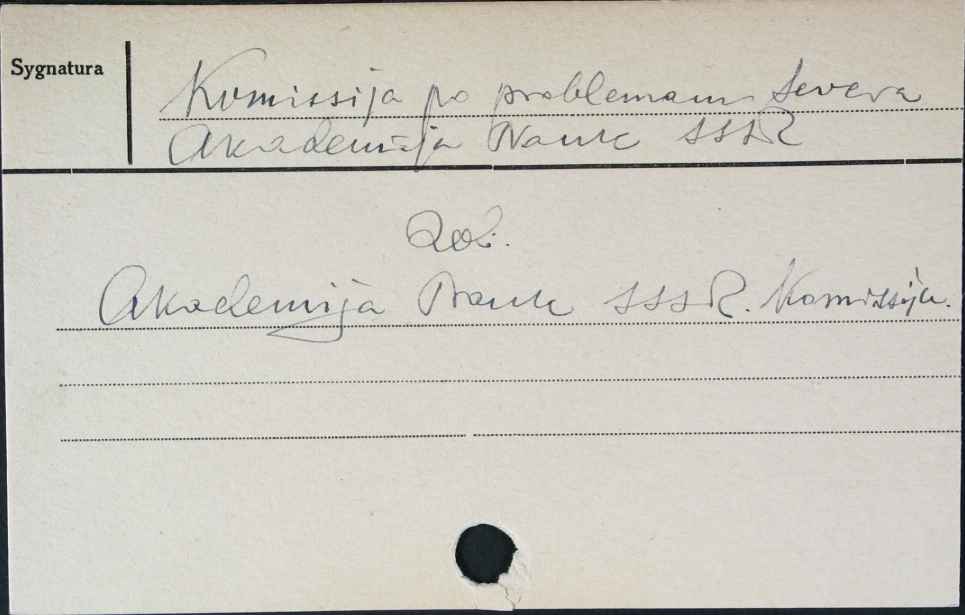 Sygnatura
Komissija po problemam Severa
Akademija Nauk SSSR
Zob.
Akademija Nauk SSSR. Komissija.